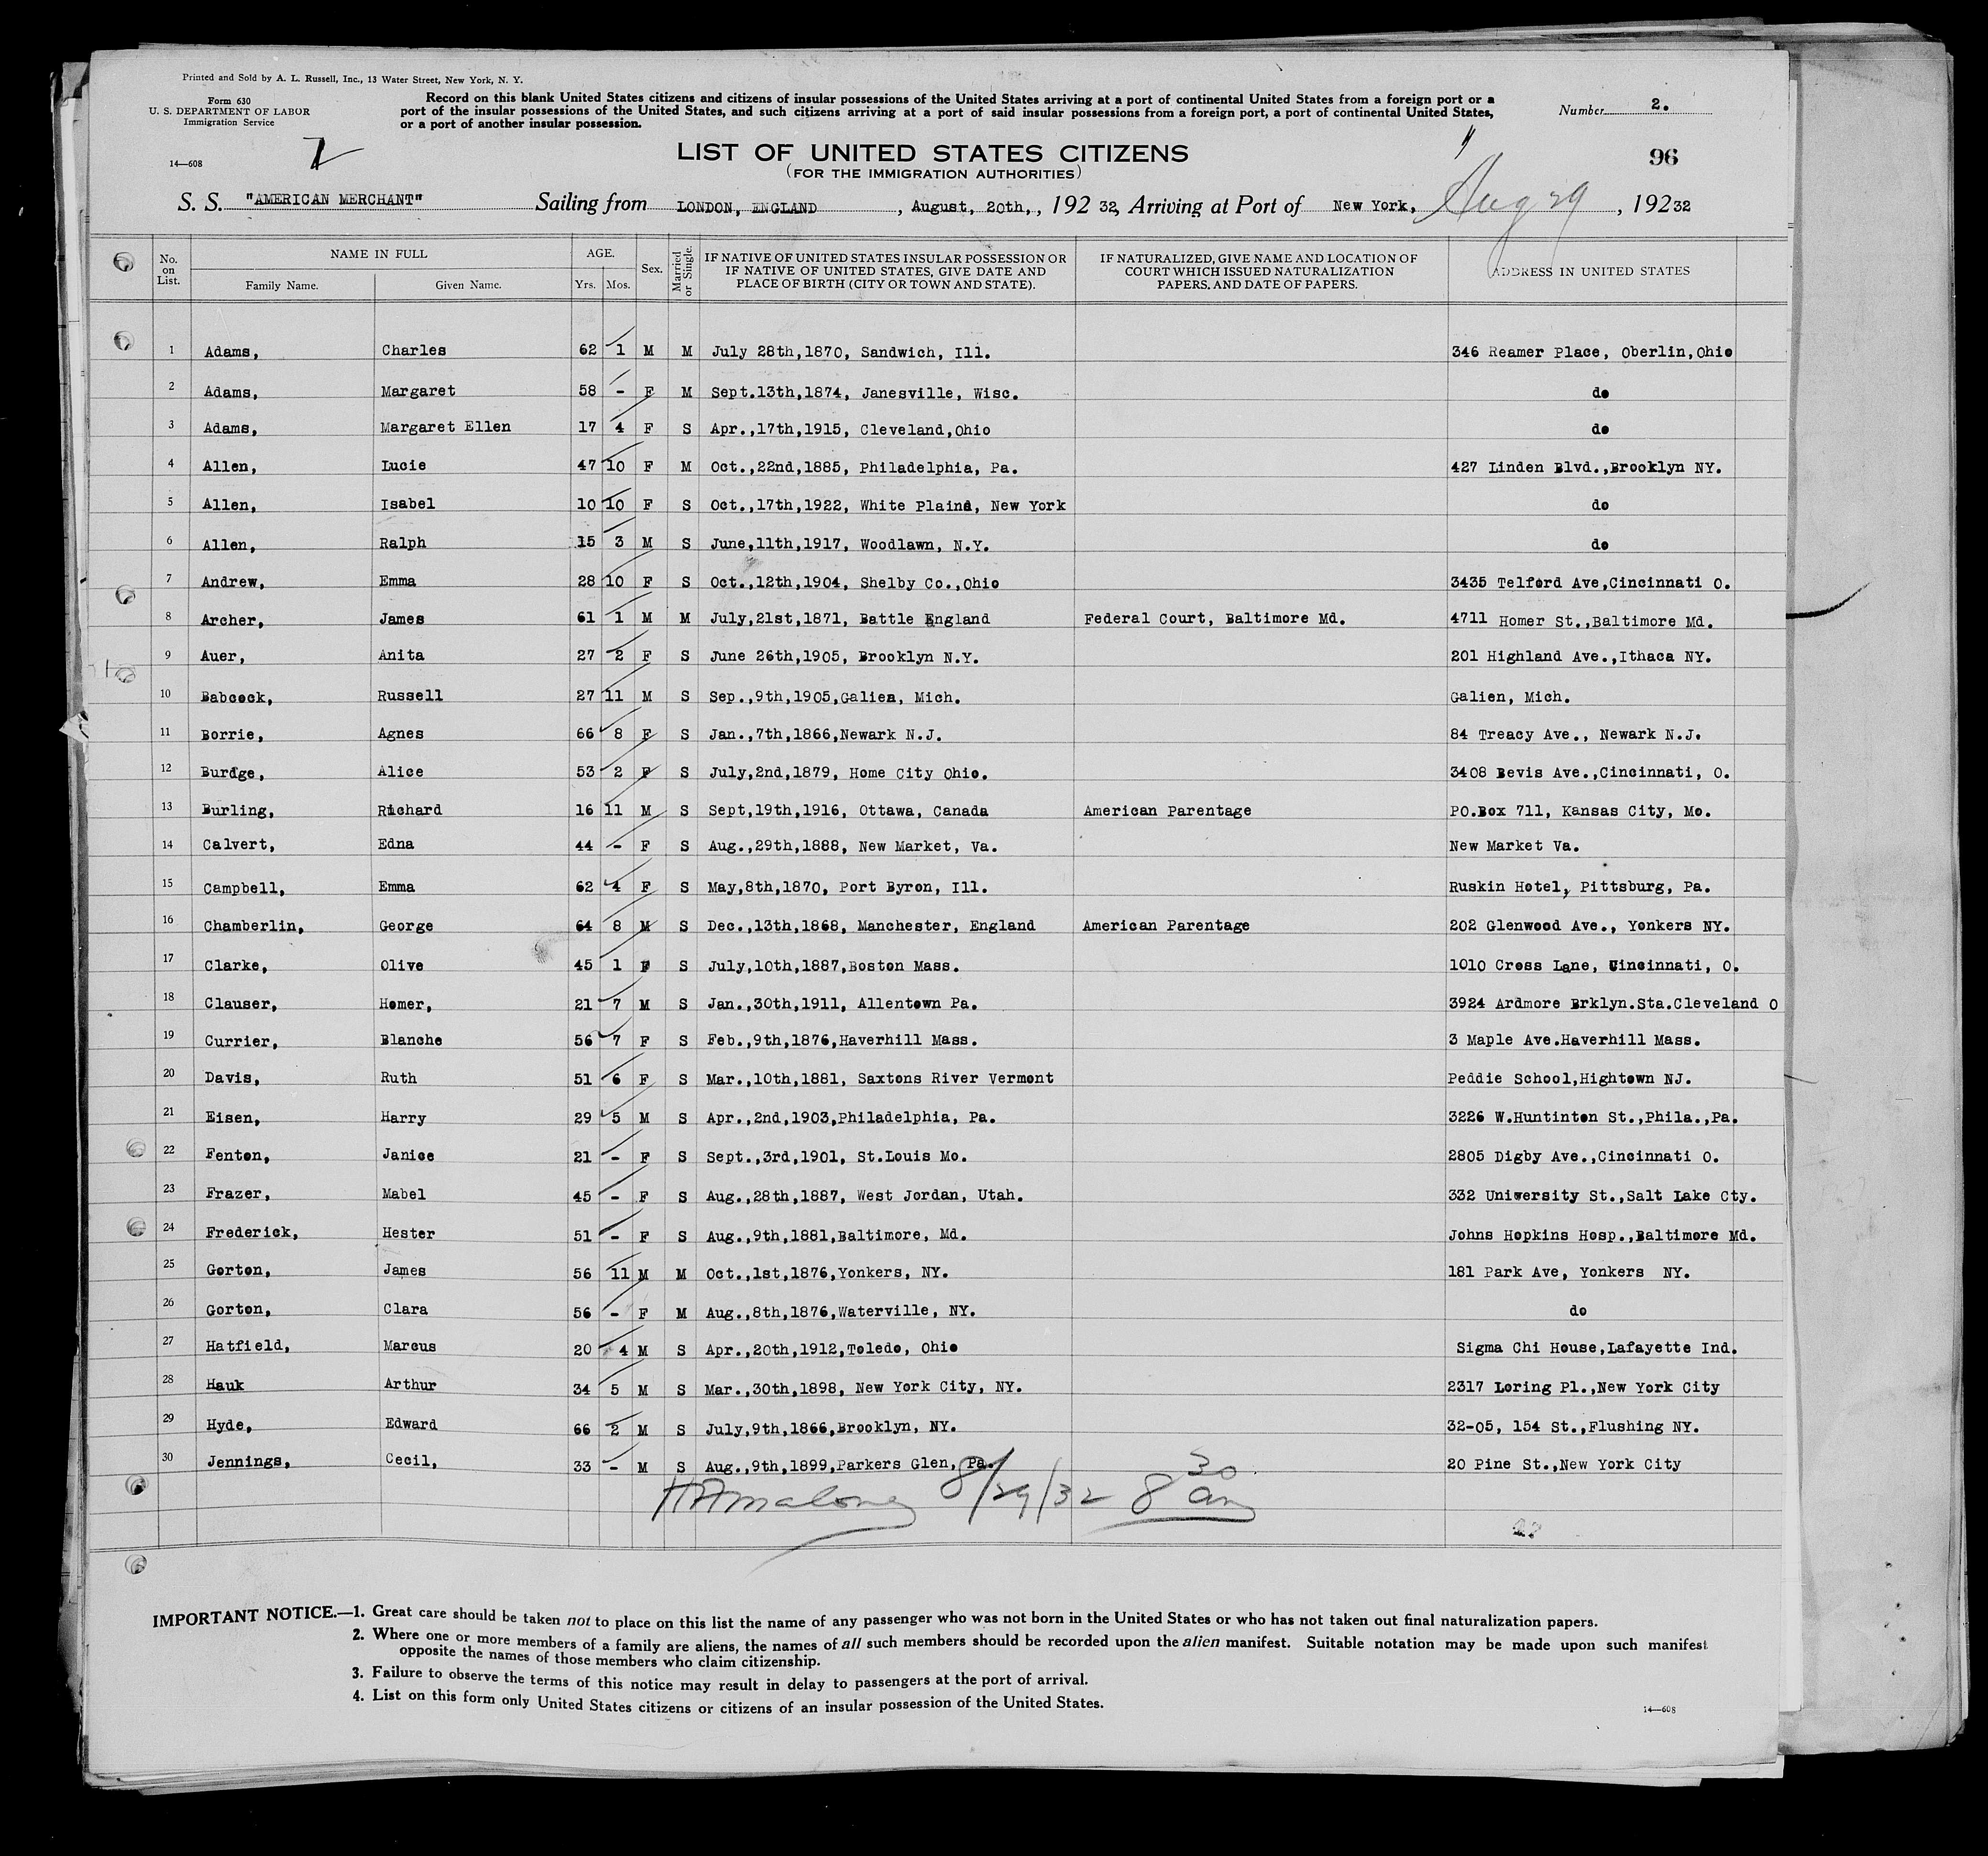 Printed and Sold by A. L. Russell, Inc., 13 Water Street, New York, N. Y.
Form 630
U. S. DEPARTMENT OF LABOR
Immigration Service
14—608
Record on this blank United States citizens and citizens of insular possessions of the United States arriving at a port of continental United States from a foreign port or a
port of the insular possessions of the United States, and such citizens arriving at a port of said insular possessions from a foreign port, a port of continental United States,
or a port of another insular possession.
Number 2.
LIST OF UNITED STATES CITIZENS
(FOR THE IMMIGRATION AUTHORITIES)
96
S. S. "AMERICAN MERCHANT" Sailing from LONDON, ENGLAND, August, 20th,, 192 32, Arriving at Port of New York, Aug 29, 192 32
No. on List. NAME IN FULL Family Name. Given Name. AGE. Yrs. Mos. Sex. Married or Single. IF NATIVE OF UNITED STATES INSULAR POSSESSION OR IF NATIVE OF UNITED STATES, GIVE DATE AND PLACE OF BIRTH (CITY OR TOWN AND STATE). IF NATURALIZED, GIVE NAME AND LOCATION OF COURT WHICH ISSUED NATURALIZATION PAPERS, AND DATE OF PAPERS. ADDRESS IN UNITED STATES
1 Adams, Charles 62 1 M M July 28th,1870, Sandwich, Ill. 346 Reamer Place, Oberlin,Ohio
2 Adams, Margaret 58 - F M Sept.13th,1874, Janesville, Wisc. do
3 Adams, Margaret Ellen 17 4 F S Apr.,17th,1915, Cleveland,Ohio do
4 Allen, Lucie 47 10 F M Oct.,22nd,1885, Philadelphia, Pa. 427 Linden Blvd.,Brooklyn NY.
5 Allen, Isabel 10 10 F S Oct.,17th,1922, White Plains, New York do
6 Allen, Ralph 15 3 M S June,11th,1917, Woodlawn, N.Y. do
7 Andrew, Emma 28 10 F S Oct.,12th,1904, Shelby Co.,Ohio 3435 Telford Ave,Cincinnati O.
8 Archer, James 61 1 M M July,21st,1871, Battle England Federal Court, Baltimore Md. 4711 Homer St.,Baltimore Md.
9 Auer, Anita 27 2 F S June 26th,1905, Brooklyn N.Y. 201 Highland Ave.,Ithaca NY.
10 Babcock, Russell 27 11 M S Sep.,9th,1905,Galien, Mich. Galien, Mich.
11 Borrie, Agnes 66 8 F S Jan.,7th,1866,Newark N.J. 84 Treacy Ave., Newark N.J.
12 Burdge, Alice 53 2 F S July,2nd,1879, Home City Ohio. 3408 Bevis Ave.,Cincinnati, O.
13 Burling, Richard 16 11 M S Sept,19th,1916, Ottawa, Canada American Parentage PO.Box 711, Kansas City, Mo.
14 Calvert, Edna 44 - F S Aug.,29th,1888, New Market, Va. New Market Va.
15 Campbell, Emma 62 4 F S May,8th,1870, Port Byron, Ill. Ruskin Hotel, Pittsburg, Pa.
16 Chamberlin, George 64 8 M S Dec.,13th,1868, Manchester, England American Parentage 202 Glenwood Ave., Yonkers NY.
17 Clarke, Olive 45 1 F S July,10th,1887,Boston Mass. 1010 Cross Lane, Cincinnati, O.
18 Clauser, Homer, 21 7 M S Jan.,30th,1911, Allentown Pa. 3924 Ardmore Brklyn.Sta.Cleveland O
19 Currier, Blanche 56 7 F S Feb.,9th,1876,Haverhill Mass. 3 Maple Ave.Haverhill Mass.
20 Davis, Ruth 51 6 F S Mar.,10th,1881, Saxtons River Vermont Peddie School,Hightown NJ.
21 Eisen, Harry 29 5 M S Apr.,2nd,1903,Philadelphia, Pa. 3226 W.Huntinton St.,Phila.,Pa.
22 Fenton, Janice 21 - F S Sept.,3rd,1901, St.Louis Mo. 2805 Digby Ave.,Cincinnati O.
23 Frazer, Mabel 45 - F S Aug.,28th,1887, West Jordan, Utah. 332 University St.,Salt Lake Cty.
24 Frederick, Hester 51 - F S Aug.,9th,1881,Baltimore, Md. Johns Hopkins Hosp.,Baltimore Md.
25 Gorton, James 56 11 M M Oct.,1st,1876,Yonkers, NY. 181 Park Ave, Yonkers NY.
26 Gorton, Clara 56 - F M Aug.,8th,1876,Waterville, NY. do
27 Hatfield, Marcus 20 4 M S Apr.,20th,1912,Toledo, Ohio Sigma Chi House,Lafayette Ind.
28 Hauk Arthur 34 5 M S Mar.,30th,1898, New York City, NY. 2317 Loring Pl.,New York City
29 Hyde, Edward 66 2 M S July,9th,1866,Brooklyn, NY. 32-05, 154 St.,Flushing NY.
30 Jennings, Cecil, 33 - M S Aug.,9th,1899,Parkers Glen, Pa. 20 Pine St.,New York City
Maloney 8/29/32 8 30 am
IMPORTANT NOTICE.—1. Great care should be taken not to place on this list the name of any passenger who was not born in the United States or who has not taken out final naturalization papers.
2. Where one or more members of a family are aliens, the names of all such members should be recorded upon the alien manifest. Suitable notation may be made upon such manifest
opposite the names of those members who claim citizenship.
3. Failure to observe the terms of this notice may result in delay to passengers at the port of arrival.
4. List on this form only United States citizens or citizens of an insular possession of the United States.
14—608